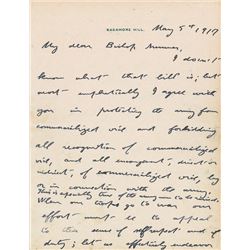 SAGAMORE HILL.
May 5th 1917
My dear Bishop
I doesn't
know what that bill is; but
most emphatically I agree with
you in protecting the army from
commercialized vice and forbidding
all recognition of commercialized
vice, and all encouragement, direct or
indirect, of commercialized vice, by
or in connection with the army.
This is especially true of the army
When our troops go to war our
effort must be to appeal
to the sense of self respect and of
duty; let us effectively endeavor